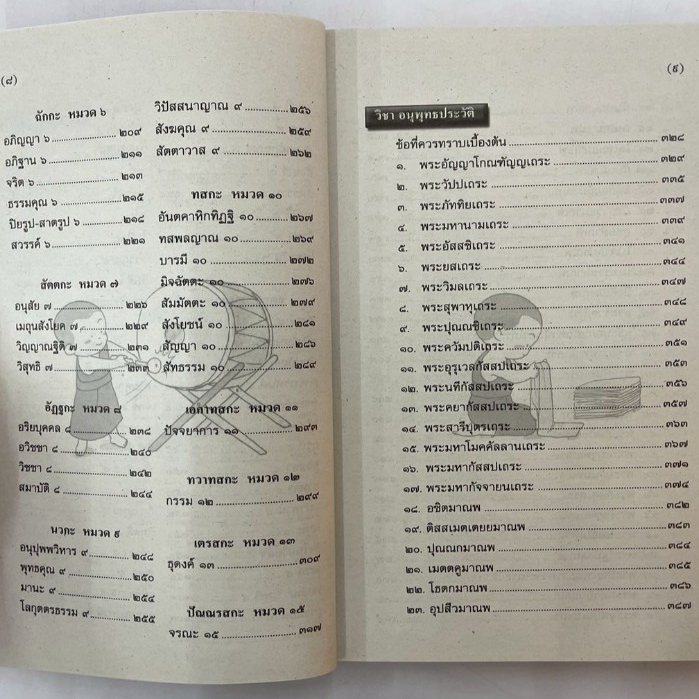 (๘)
ฉักกะ หมวด ๖
อภิญญา ๖ ........ ๒๐๙
อภิฐาน ๖ ........ ๒๑๑
จริต ๖ ........ ๒๑๓
ธรรมคุณ ๖ ........ ๒๑๕
ปิยรูป-สาตรูป ๖ ........ ๒๑๘
สวรรค์ ๖ ........ ๒๒๑
สัตตกะ หมวด ๗
อนุสัย ๗ ........ ๒๒๖
เมถุนสังโยค ๗ ........ ๒๒๙
วิญญาณฐิติ ๗ ........ ๒๓๑
วิสุทธิ ๗ ........ ๒๓๓
อัฏฐกะ หมวด ๘
อริยบุคคล ๘ ........ ๒๓๘
อวิชชา ๘ ........ ๒๔๐
วิชชา ๘ ........ ๒๔๒
สมาบัติ ๘ ........ ๒๔๔
นวกะ หมวด ๙
อนุปุพพวิหาร ๙ ........ ๒๔๘
พุทธคุณ ๙ ........ ๒๕๐
มานะ ๙ ........ ๒๕๔
โลกุตตรธรรม ๙ ........ ๒๕๕
วิปัสสนาญาณ ๙ ........ ๒๕๖
สังฆคุณ ๙ ........ ๒๕๙
สัตตาวาส ๙ ........ ๒๖๒
ทสกะ หมวด ๑๐
อันตคาหิกทิฏฐิ ๑๐ ........ ๒๖๗
ทสพลญาณ ๑๐ ........ ๒๖๙
บารมี ๑๐ ........ ๒๗๒
มิจฉัตตะ ๑๐ ........ ๒๗๖
สัมมัตตะ ๑๐ ........ ๒๗๙
สังโยชน์ ๑๐ ........ ๒๘๑
สัญญา ๑๐ ........ ๒๘๖
สัทธรรม ๑๐ ........ ๒๘๙
เอกาทสกะ หมวด ๑๑
ปัจจยาการ ๑๑ ........ ๒๙๓
ทวาทสกะ หมวด ๑๒
กรรม ๑๒ ........ ๒๙๙
เตรสกะ หมวด ๑๓
ธุดงค์ ๑๓ ........ ๓๐๙
ปัณณรสกะ หมวด ๑๕
จรณะ ๑๕ ........ ๓๑๗
(๙)
วิชา อนุพุทธประวัติ
ข้อที่ควรทราบเบื้องต้น ........ ๓๒๘
๑. พระอัญญาโกณฑัญญเถระ ........ ๓๒๙
๒. พระวัปปเถระ ........ ๓๓๕
๓. พระภัททิยเถระ ........ ๓๓๗
๔. พระมหานามเถระ ........ ๓๓๙
๕. พระอัสสชิเถระ ........ ๓๔๑
๖. พระยสเถระ ........ ๓๔๔
๗. พระวิมลเถระ ........ ๓๔๗
๘. พระสุพาหุเถระ ........ ๓๔๘
๙. พระปุณณชิเถระ ........ ๓๔๙
๑๐. พระควัมปติเถระ ........ ๓๕๑
๑๑. พระอุรุเวลกัสสปเถระ ........ ๓๕๓
๑๒. พระนทีกัสสปเถระ ........ ๓๕๖
๑๓. พระคยากัสสปเถระ ........ ๓๕๗
๑๔. พระสารีบุตรเถระ ........ ๓๖๓
๑๕. พระมหาโมคคัลลานเถระ ........ ๓๖๗
๑๖. พระมหากัสสปเถระ ........ ๓๗๑
๑๗. พระมหากัจจายนเถระ ........ ๓๗๔
๑๘. อชิตมาณพ ........ ๓๘๒
๑๙. ติสสเมตเตยยมาณพ ........ ๓๘๓
๒๐. ปุณณกมาณพ ........ ๓๘๔
๒๑. เมตตคูมาณพ ........ ๓๘๕
๒๒. โธตกมาณพ ........ ๓๘๖
๒๓. อุปสีวมาณพ ........ ๓๘๗